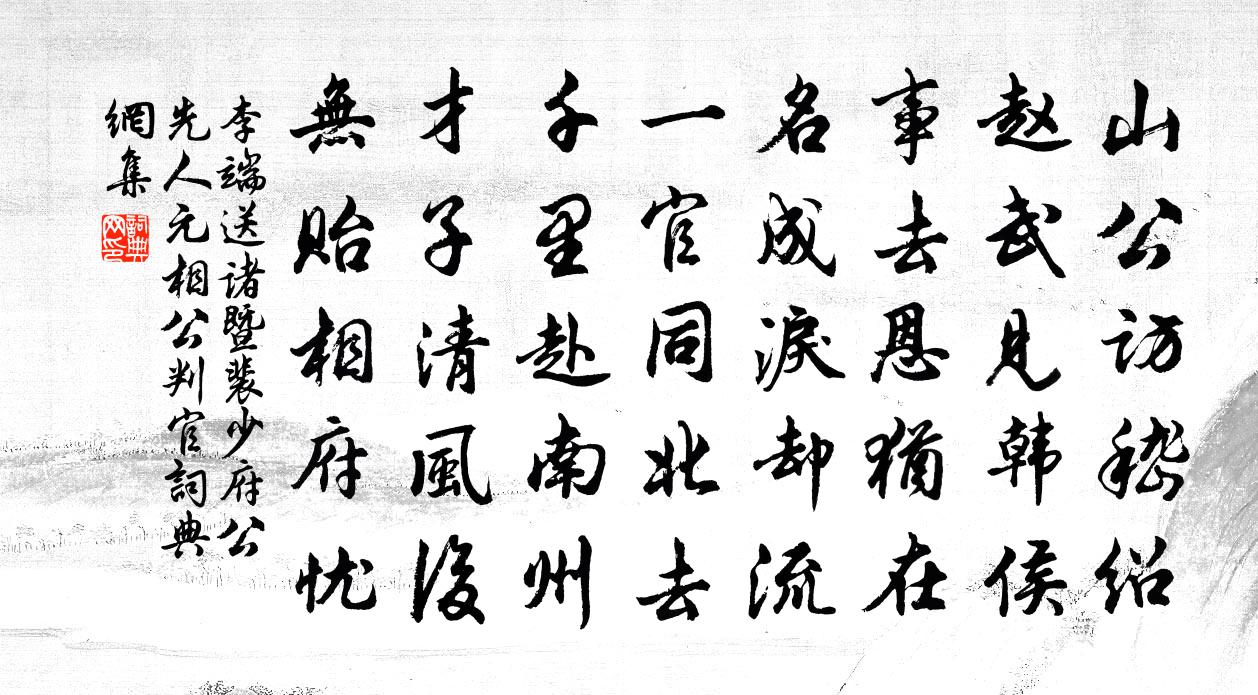 山公访嵇绍
赵武见韩侯
事去恩猶在
名成淚却流
一官同北去
千里赴南州
才子清風後
無貽相府忧
李端送诸暨裴少府公
先人元相公判官詞典
網集
詞典網印